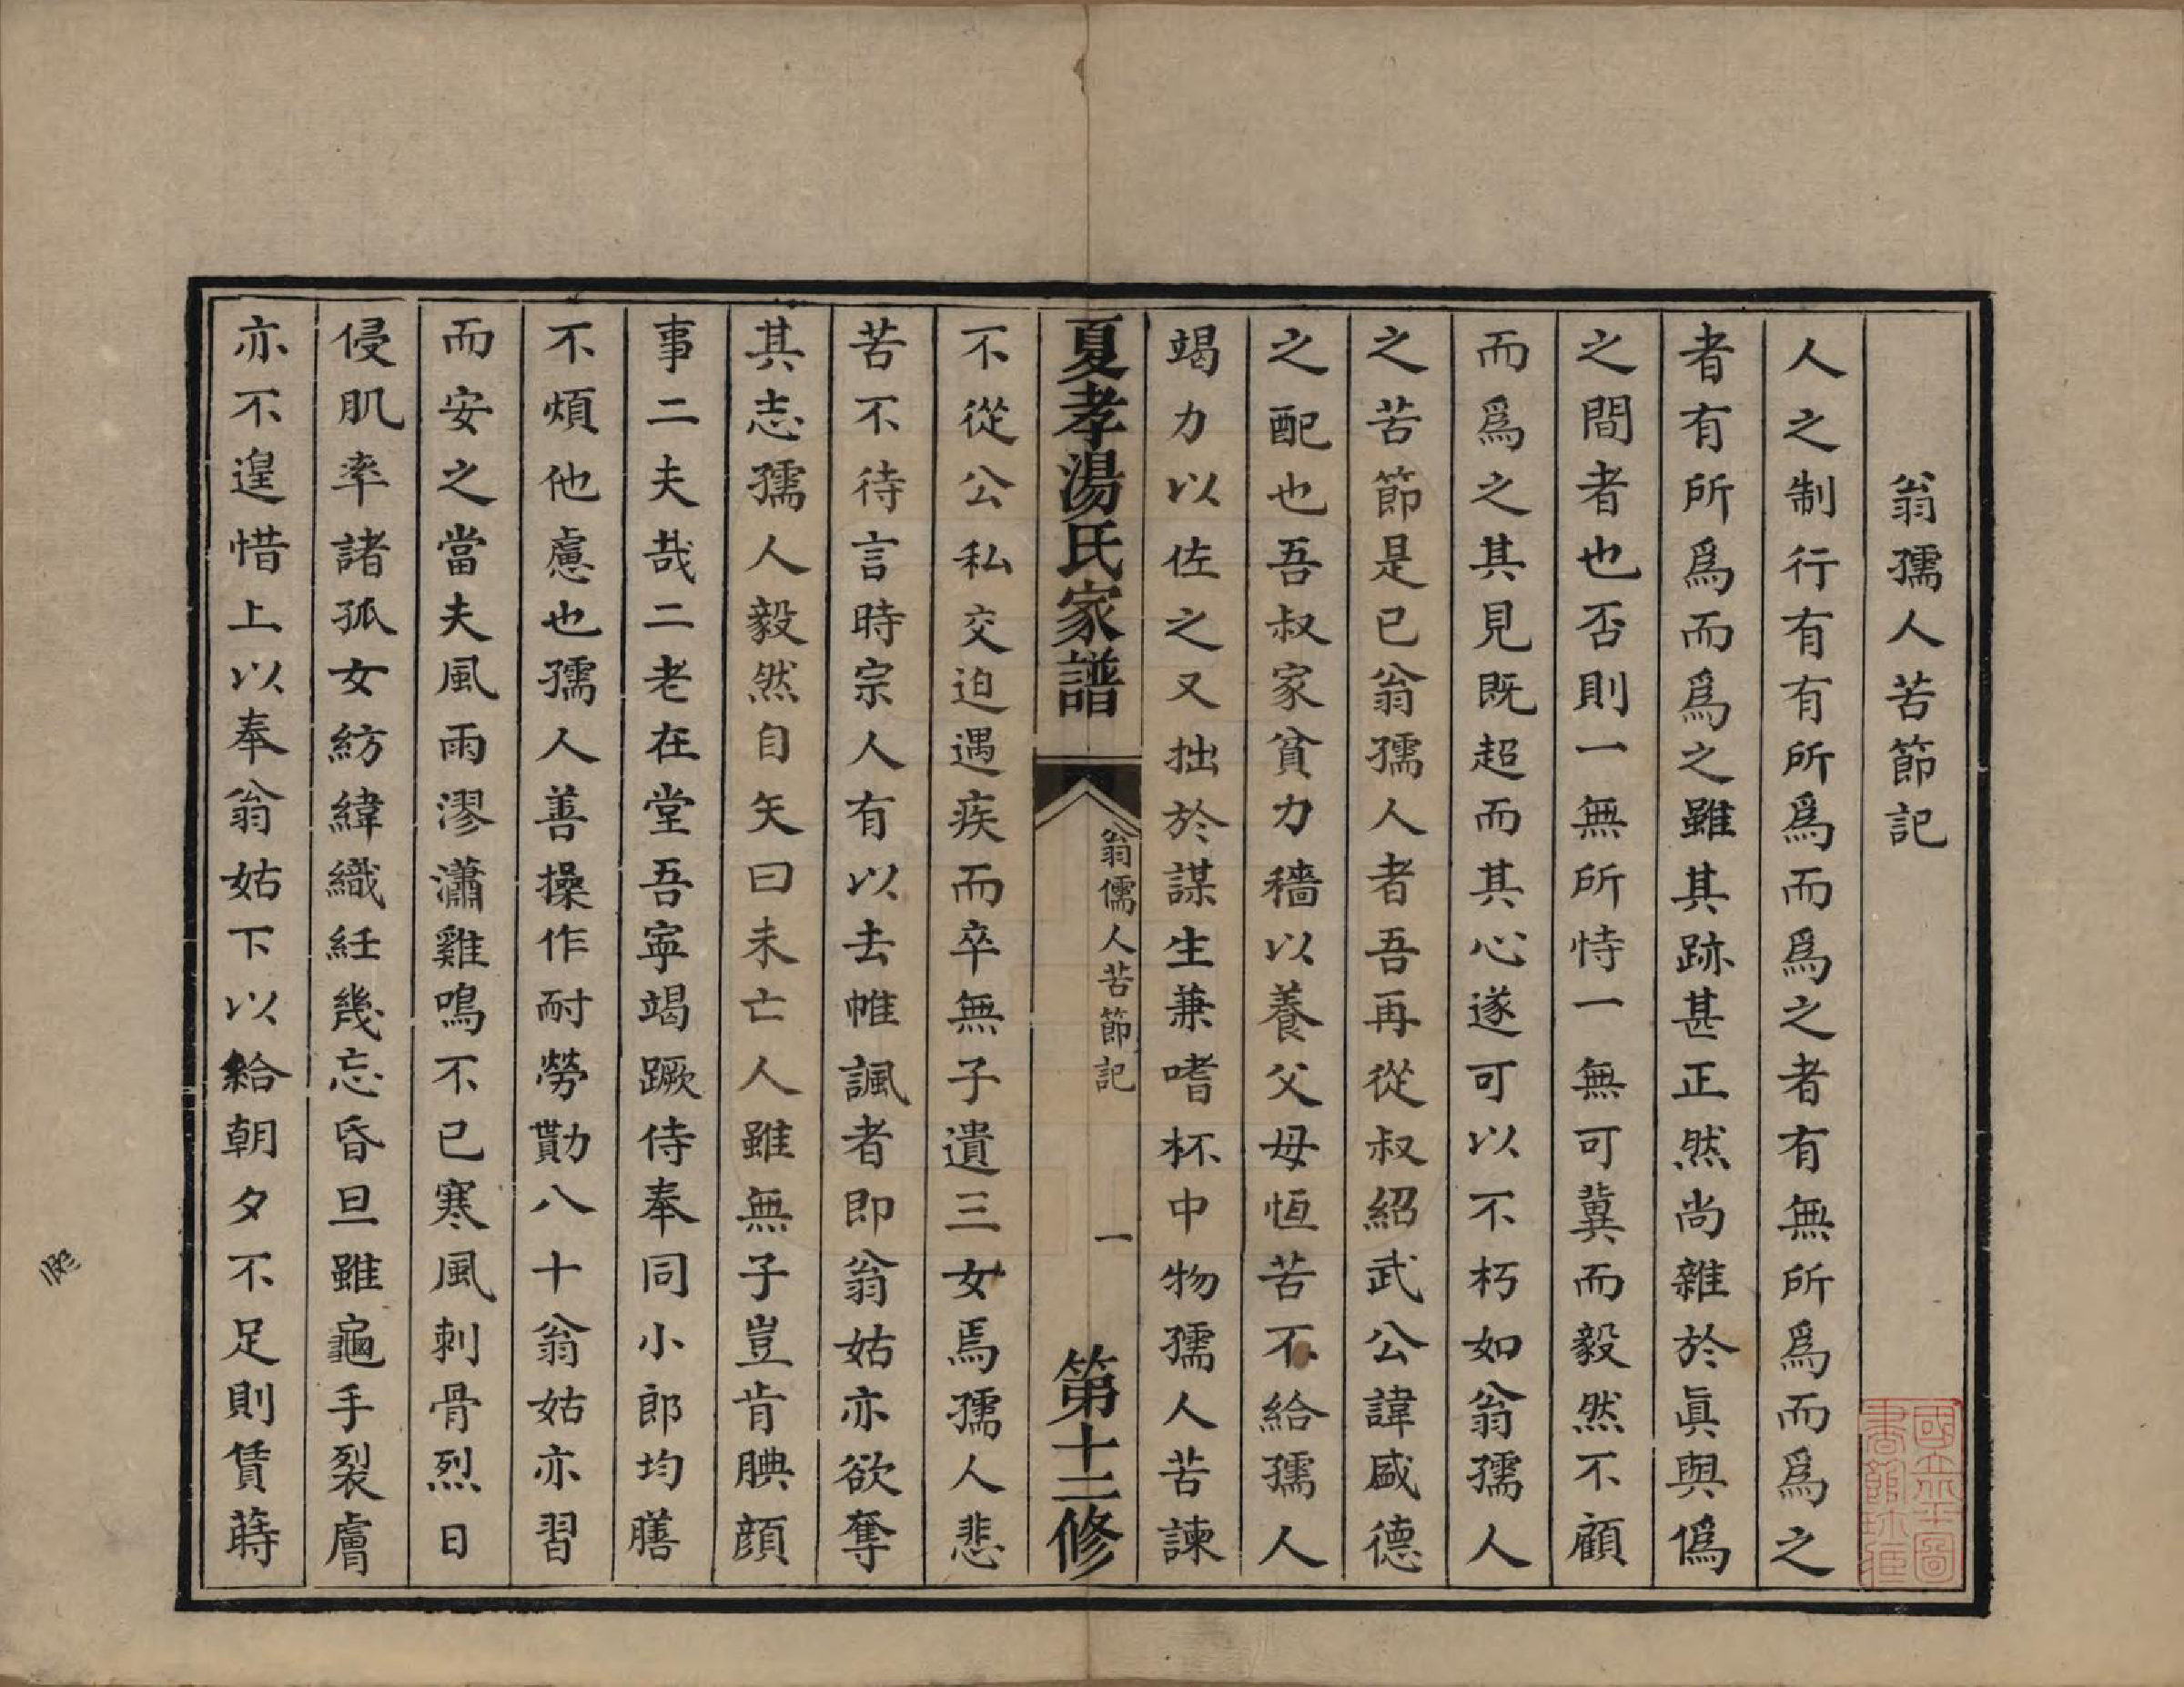 翁孺人苦節記
人之制行有有所爲而爲之者有無所爲而爲之
者有所爲而爲之雖其跡甚正然尚雜於眞與僞
之間者也否則一無所恃一無可冀而毅然不顧
而爲之其見既超而其心遂可以不朽如翁孺人
之苦節是已翁孺人者吾再從叔紹武公諱盛德
之配也吾叔家貧力穡以養父母恆苦不給孺人
竭力以佐之又拙於謀生兼嗜杯中物孺人苦諫
夏孝湯氏家譜
翁儒人苦節記
一
第十二修
不從公私交迫遇疾而卒無子遺三女焉孺人悲
苦不待言時宗人有以去帷諷者即翁姑亦欲奪
其志孺人毅然自矢曰未亡人雖無子豈肯腆顏
事二夫哉二老在堂吾寧竭蹶侍奉同小郎均膳
不煩他慮也孺人善操作耐勞勩八十翁姑亦習
而安之當夫風雨漻瀟雞鳴不已寒風刺骨烈日
侵肌率諸孤女紡緯織紝幾忘昏旦雖龜手裂膚
亦不遑惜上以奉翁姑下以給朝夕不足則賃蒔
國立北平圖
書館珍藏